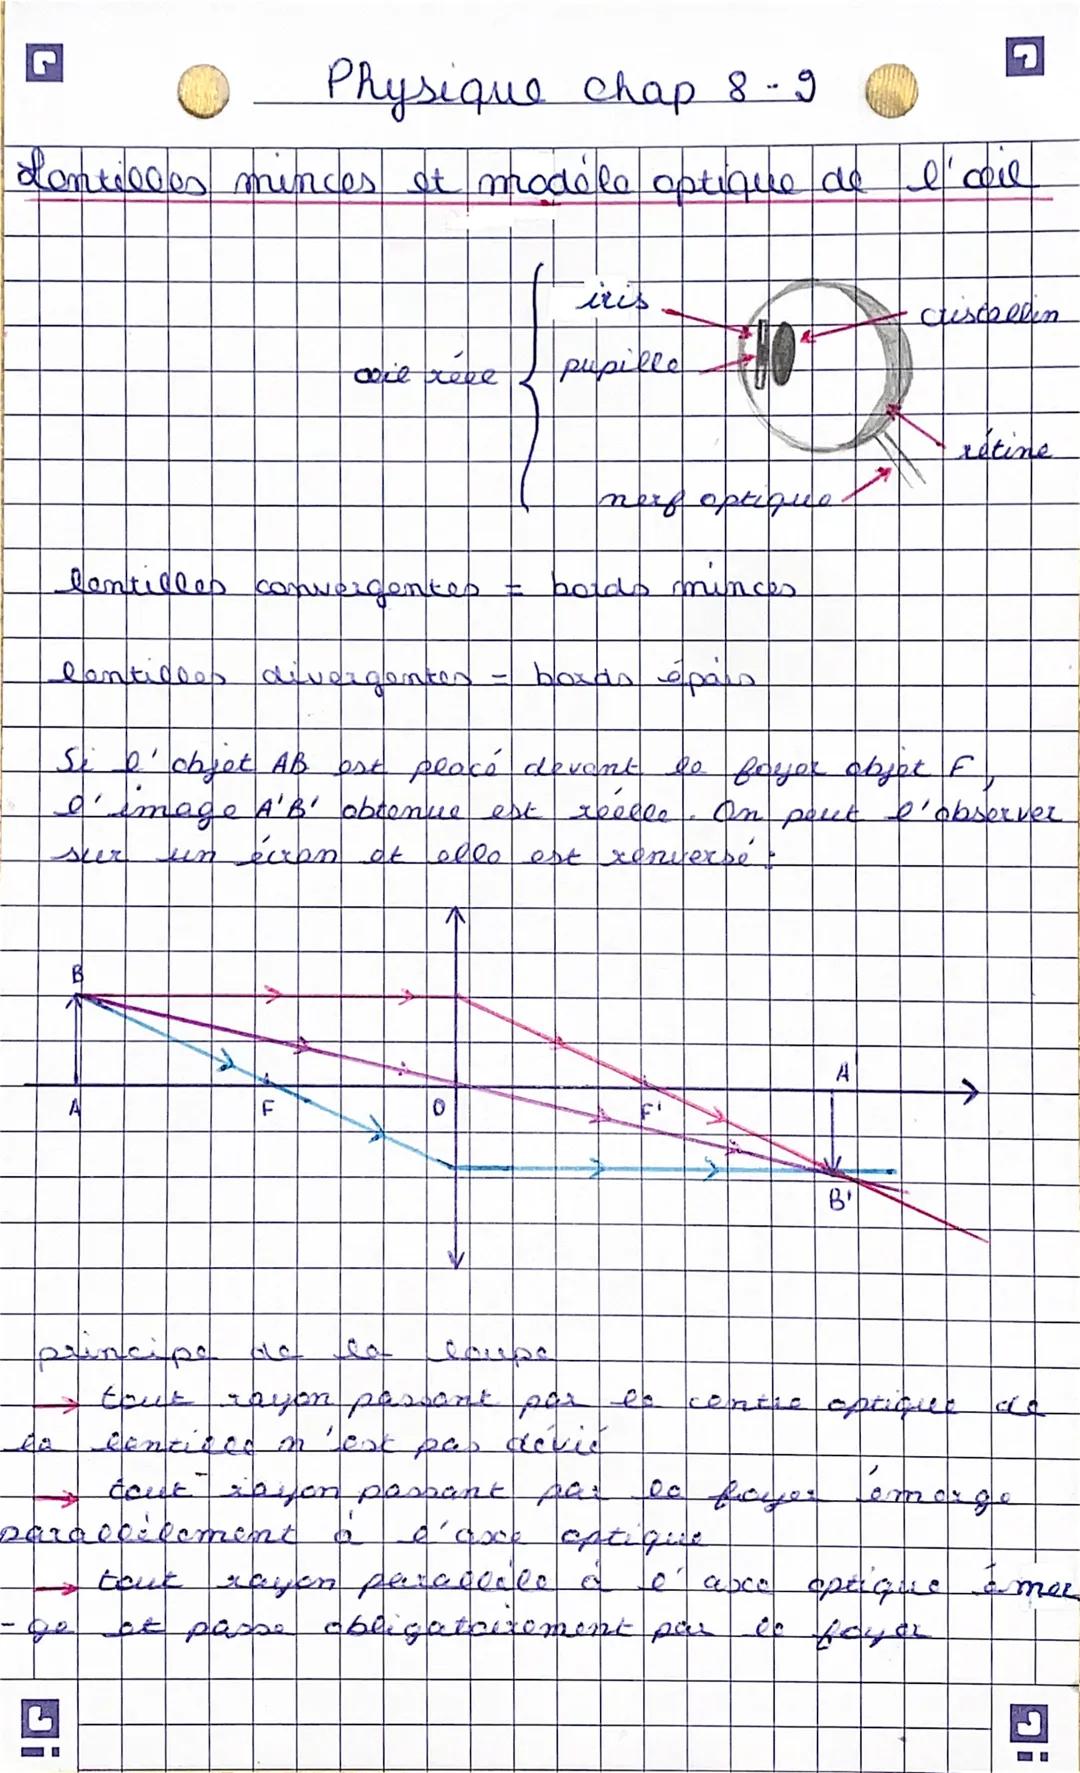 Physique chap 8-9
Lentilles minces et modéle optique de l'œil
iris
cristallin
œil réel
pupille
rétine
nerf optique
lentilles convergentes = bords minces
lentilles divergentes = bords épais
Si l'objet AB est placé devant le foyer objet F,
l'image A'B' obtenue est réelle. On peut l'observer
sur un écran et elle est renversé :
B
A
A
F
O
F'
B'
principe de la loupe
→ tout rayon passant par le centre optique de
la lentille n'est pas dévié
→ tout rayon passant par le foyer émerge
parallèlement à l'axe optique
→ tout rayon parallèle à l'axe optique émer
-ge et passe obligatoirement par le foyer